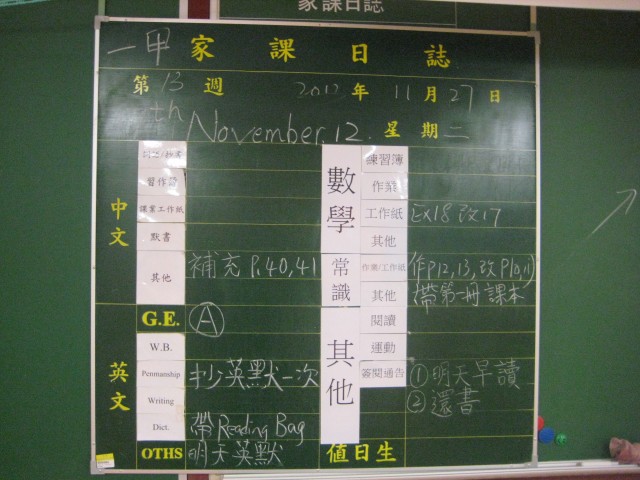 家課日誌
一甲 家課日誌
第 13 週 2012 年 11 月 27 日
th November, 12. 星期二
中文
習作簿
課業工作紙
默書
其他 補充 P.40,41
G.E. Ⓐ
英文
W.B.
Penmanship 抄英默一次
Writing
Dict. 帶 Reading Bag
OTHS 明天英默
數學
練習簿
作業
工作紙 Ex18 改17
其他
常識
作業/工作紙 作P12,13,改P10,11)
其他 帶第一冊課本
其他
閱讀
運動
簽閱通告 ①明天早讀
②還書
值日生